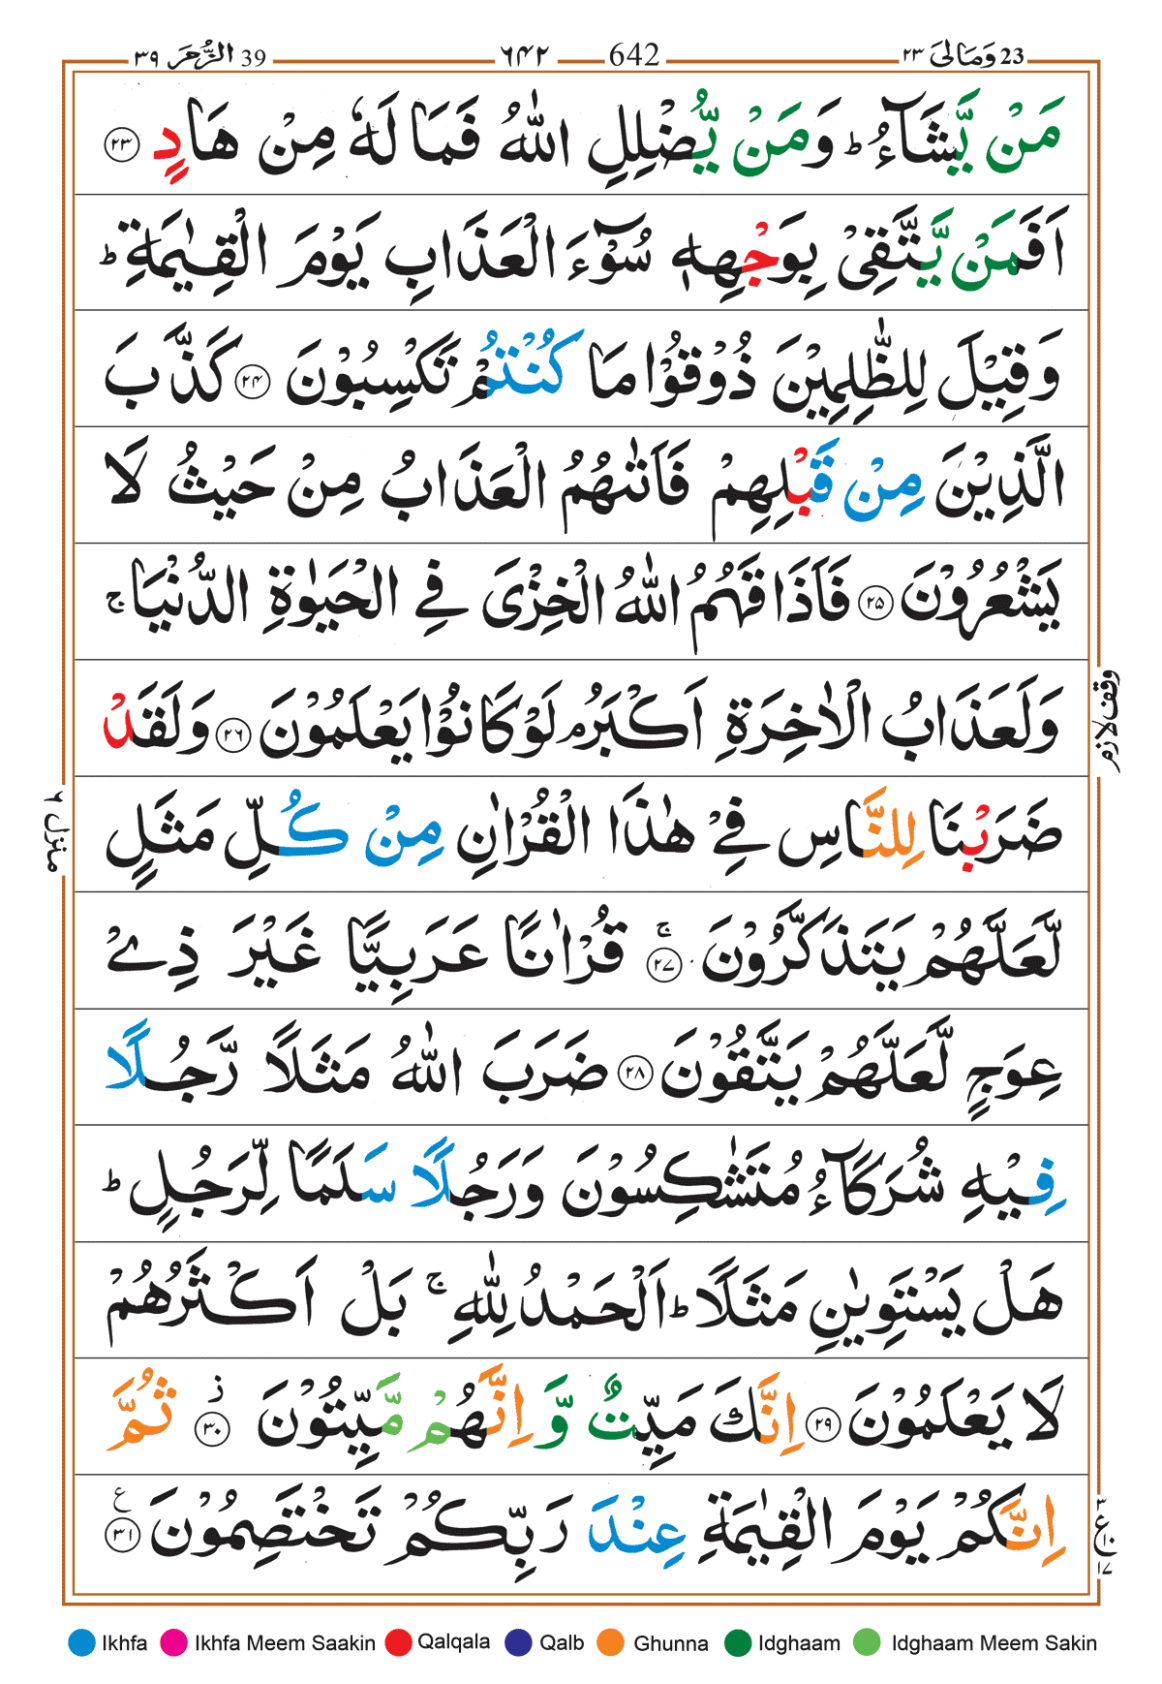 الزُّمَر ٣٩ 39
٦٤٢ 642
وَمَالِیَ ٢٣ 23
مَنْ یَّشَآءُ ؕ وَمَنْ یُّضْلِلِ اللّٰهُ فَمَا لَهٗ مِنْ هَادٍ ۝٢٣
اَفَمَنْ یَّتَّقِیْ بِوَجْهِهٖ سُوْٓءَ الْعَذَابِ یَوْمَ الْقِیٰمَةِ ؕ
وَقِیْلَ لِلظّٰلِمِیْنَ ذُوْقُوْا مَا كُنْتُمْ تَكْسِبُوْنَ ۝٢٤ كَذَّبَ
الَّذِیْنَ مِنْ قَبْلِهِمْ فَاَتٰىهُمُ الْعَذَابُ مِنْ حَیْثُ لَا
یَشْعُرُوْنَ ۝٢٥ فَاَذَاقَهُمُ اللّٰهُ الْخِزْیَ فِی الْحَیٰوةِ الدُّنْیَا ۚ
وَلَعَذَابُ الْاٰخِرَةِ اَكْبَرُ ۘ لَوْ كَانُوْا یَعْلَمُوْنَ ۝٢٦ وَلَقَدْ
ضَرَبْنَا لِلنَّاسِ فِیْ هٰذَا الْقُرْاٰنِ مِنْ كُلِّ مَثَلٍ
لَّعَلَّهُمْ یَتَذَكَّرُوْنَ ۚ ۝٢٧ قُرْاٰنًا عَرَبِیًّا غَیْرَ ذِیْ
عِوَجٍ لَّعَلَّهُمْ یَتَّقُوْنَ ۝٢٨ ضَرَبَ اللّٰهُ مَثَلًا رَّجُلًا
فِیْهِ شُرَكَآءُ مُتَشٰكِسُوْنَ وَرَجُلًا سَلَمًا لِّرَجُلٍ ؕ
هَلْ یَسْتَوِیٰنِ مَثَلًا ؕ اَلْحَمْدُ لِلّٰهِ ۚ بَلْ اَكْثَرُهُمْ
لَا یَعْلَمُوْنَ ۝٢٩ اِنَّكَ مَیِّتٌ وَّاِنَّهُمْ مَّیِّتُوْنَ ؗ ۝٣٠ ثُمَّ
اِنَّكُمْ یَوْمَ الْقِیٰمَةِ عِنْدَ رَبِّكُمْ تَخْتَصِمُوْنَ ۝٣١ ع
وقف لازم
منزل ٦
٣ ع ١٠ ١٧
Ikhfa Ikhfa Meem Saakin Qalqala Qalb Ghunna Idghaam Idghaam Meem Sakin